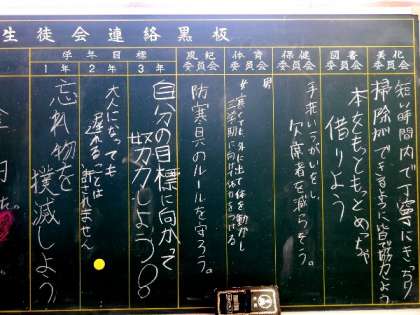 生徒会連絡黒板
美化
委員会
短い時間内で丁寧にきっちり
掃除ができるように皆で協力しよう
図書
委員会
本をもっともっとめっちゃ
借りよう
保健
委員会
手洗いうがいをし、
欠席者を減らそう。
体育
委員会
男
女
寒くても外に出て体を動かし
三学期に向けて体力をつける
風紀
委員会
防寒具のルールを守ろう。
学年目標
3年
自分の目標に向かって
努力しよう
2年
大人になっても
遅れることは
許されません
1年
忘れ物を
撲滅しよう